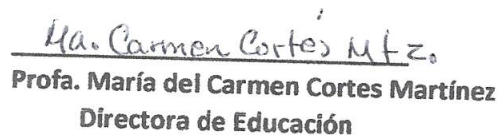 Ma. Carmen Cortés Mtz.
Profa. María del Carmen Cortes Martínez
Directora de Educación